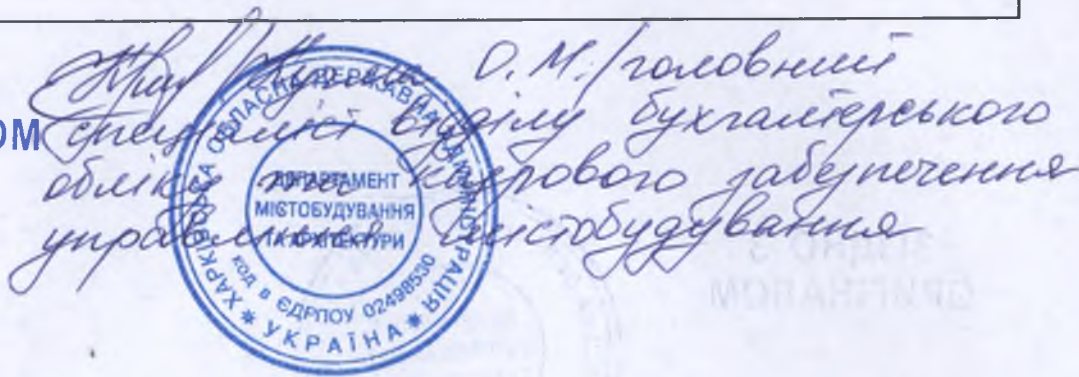 О.М./головний
ОМ спеціаліст відділу бухгалтерського
обліку та кадрового забезпечення
управління містобудування
ХАРКІВСЬКА ОБЛАСНА ДЕРЖАВНА АДМІНІСТРАЦІЯ
ДЕПАРТАМЕНТ
МІСТОБУДУВАННЯ
ТА АРХІТЕКТУРИ
КОД В ЄДРПОУ 02498530
* УКРАЇНА *
ЗГІДНО З
ОРИГІНАЛОМ